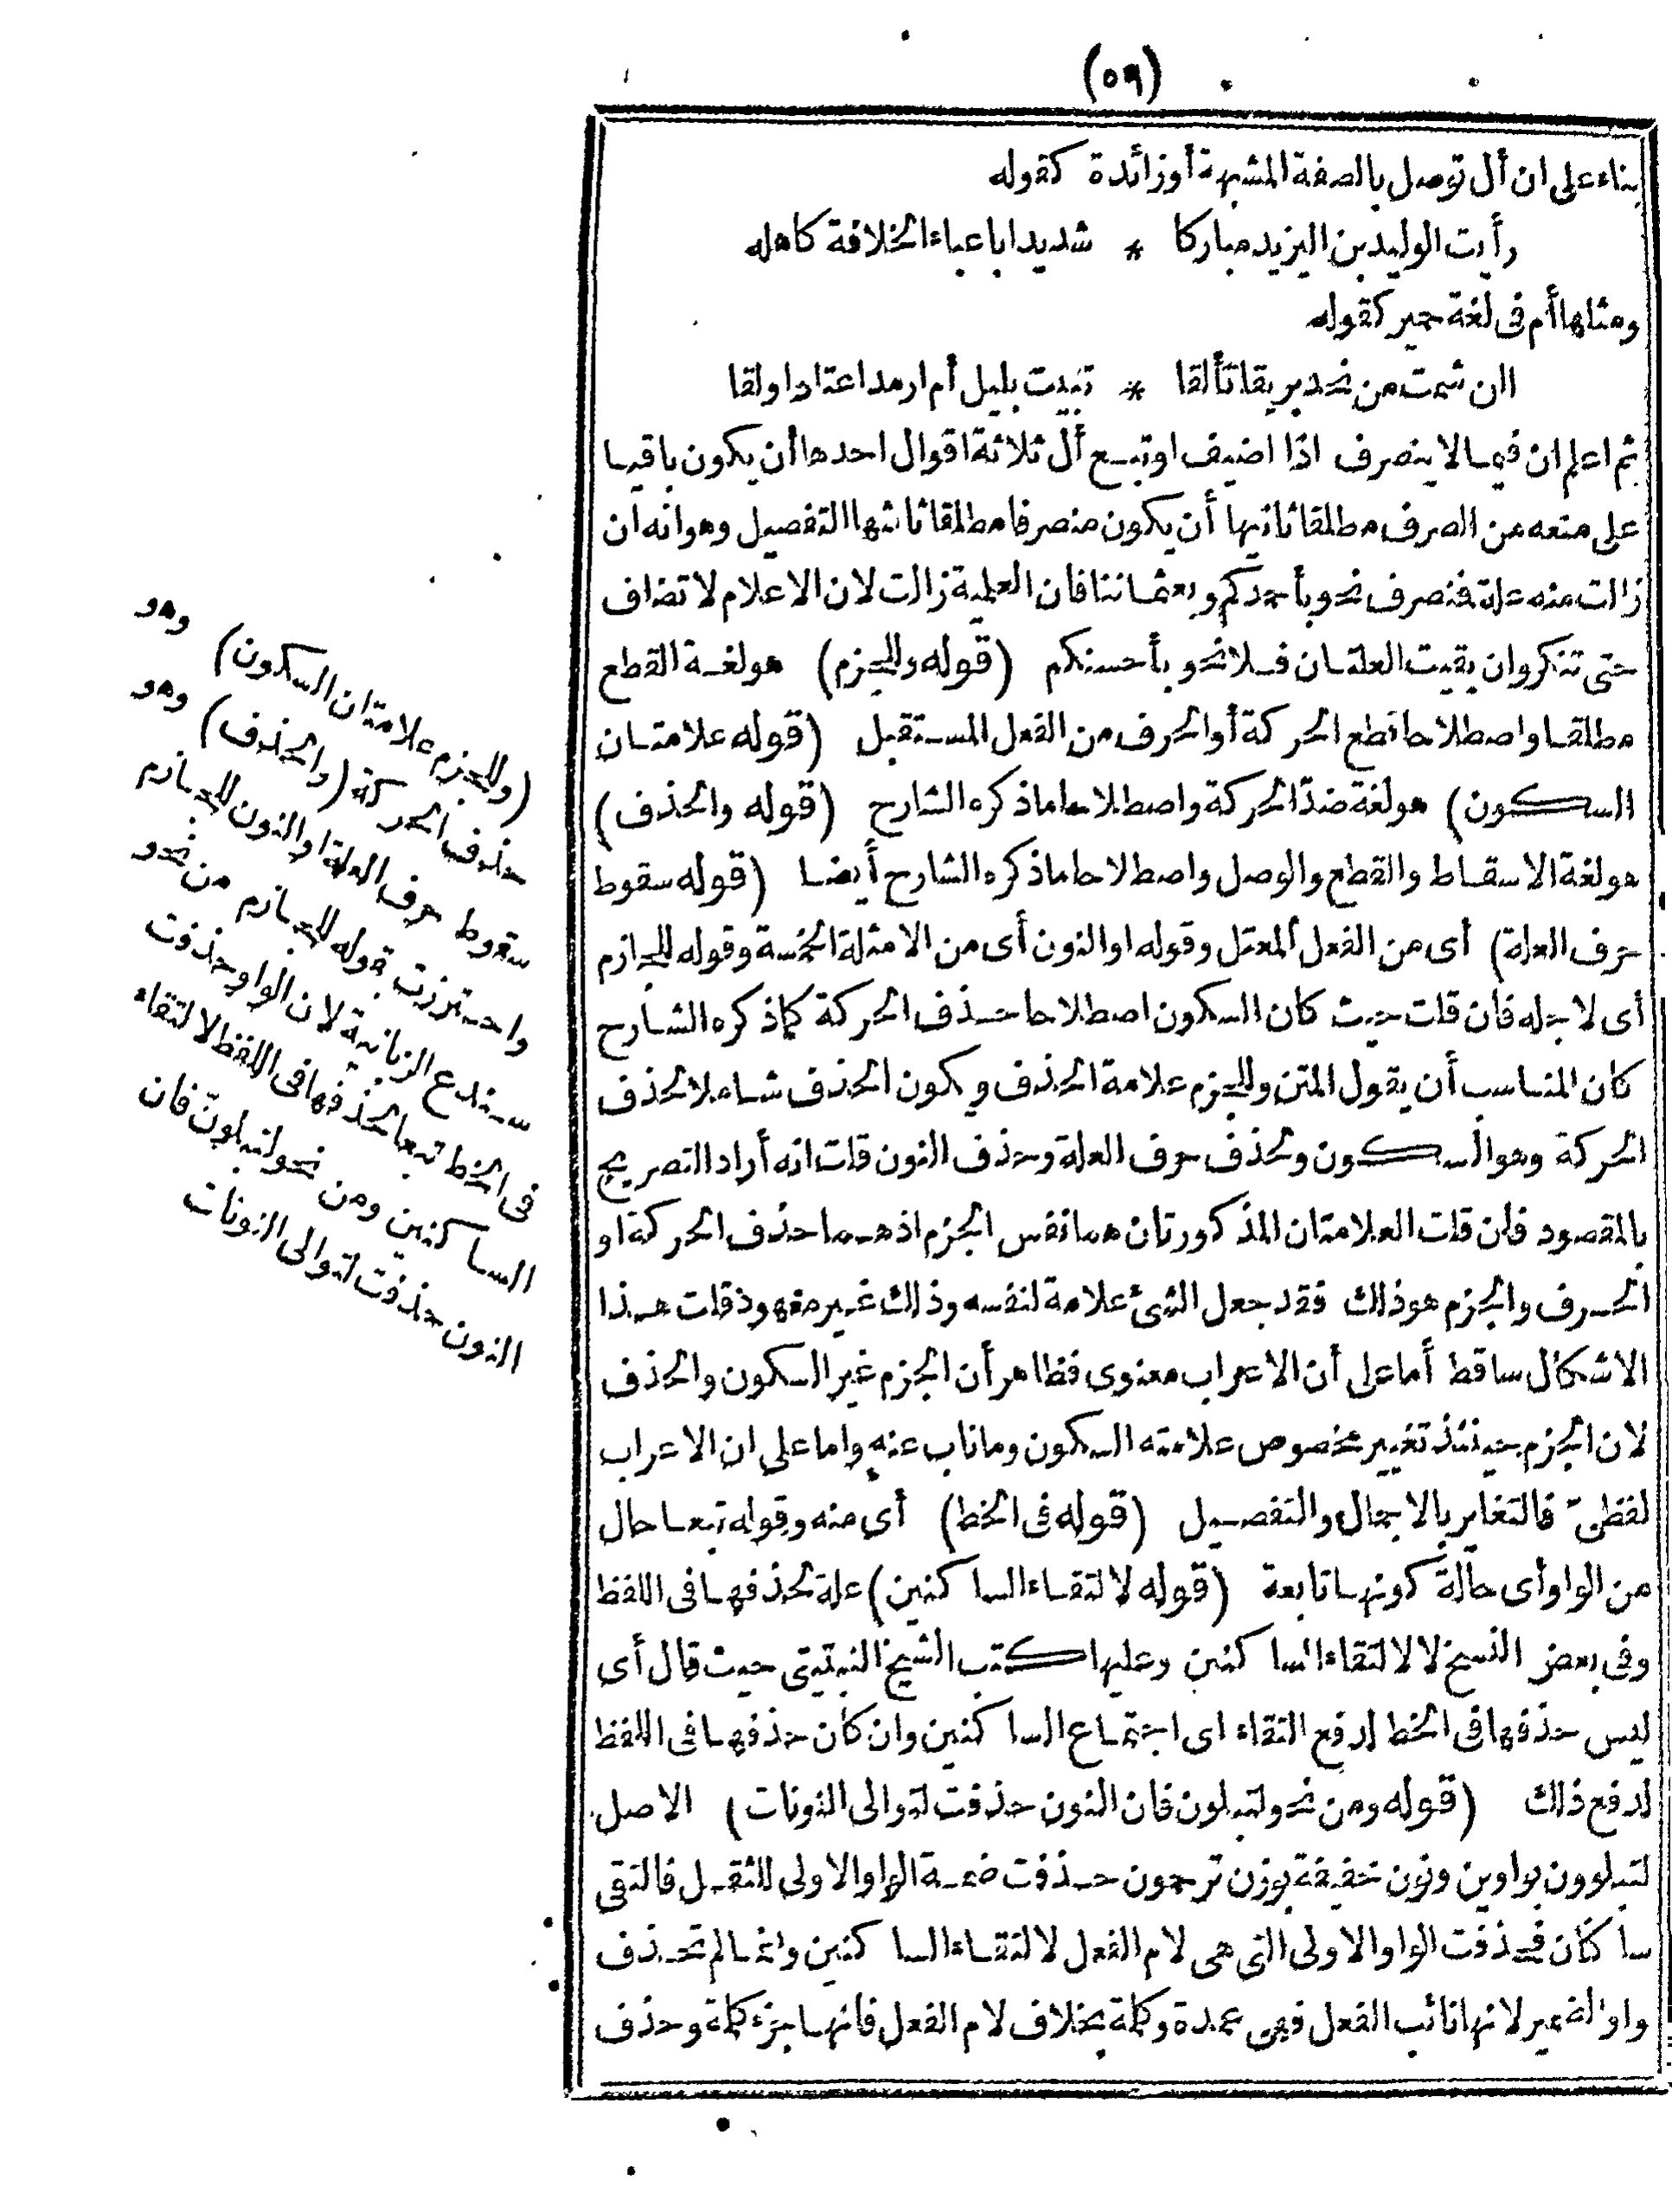 (٥٩)
بناء على ان أل توصل بالصفة المشبهة أو زائدة كقوله
رأيت الوليد بن اليزيد مباركا * شديدا باعباء الخلافة كاهله
ومثلها أم فى لغة حمير كقوله
اان شمت من نجد بريقا تألقا * تبيت بليل أم ارمد اعتاد اولقا
ثم اعلم ان فيما لا ينصرف اذا اضيف او تبع أل ثلاثة اقوال احدها أن يكون باقيا
على منعه من الصرف مطلقا ثانيها أن يكون منصرفا مطلقا ثالثها التفصيل وهو انه ان
زالت منه علة فنصرف نحو بأحمدكم وبعثماننا فان العلمية زالت لان الاعلام لا تضاف
حتى تنكر وان بقيت العلتان فلا نحو بأحسنكم (قوله وللجزم) هو لغة القطع
مطلقا واصطلاحا قطع الحركة أو الحرف من الفعل المستقبل (قوله علامتان
السكون) هو لغة ضد الحركة واصطلاحا ما ذكره الشارح (قوله والحذف)
هو لغة الاسقاط والقطع والوصل واصطلاحا ما ذكره الشارح أيضا (قوله سقوط
حرف العلة) أى من الفعل المعتل وقوله او النون أى من الامثلة الخمسة وقوله للجازم
أى لاجله فان قلت حيث كان السكون اصطلاحا حذف الحركة كما ذكره الشارح
كان المناسب أن يقول المتن وللجزم علامة الحذف ويكون الحذف شاملا لحذف
الحركة وهو السكون ولحذف حرف العلة وحذف النون قلت انه أراد التصريح
بالمقصود فان قلت العلامتان المذكورتان هما نفس الجزم اذ هما حذف الحركة او
الحرف والجزم هو ذلك فقد جعل الشئ علامة لنفسه وذلك غير معهود قلت هذا
الاشكال ساقط أما على أن الاعراب معنوى فظاهر أن الجزم غير السكون والحذف
لان الجزم حينئذ تغيير مخصوص علامته السكون وما ناب عنه واما على ان الاعراب
لفظىّ فالتغاير بالاجمال والتفصيل (قوله فى الخط) أى منه وقوله تبعا حال
من الواو أى حالة كونها تابعة (قوله لالتقاء الساكنين) علة لحذفها فى اللفظ
وفى بعض النسخ لا لالتقاء الساكنين وعليها كتب الشيخ النبتيتى حيث قال أى
ليس حذفها فى الخط لدفع التقاء اى اجتماع الساكنين وان كان حذفها فى اللفظ
لدفع ذلك (قوله ومن نحو لتبلون فان النون حذفت لتوالى النونات) الاصل
لتبلوون بواوين ونون خفيفة بوزن ترجمون حذفت ضمة الواو الاولى للثقل فالتقى
ساكنان فحذفت الواو الاولى التى هى لام الفعل لالتقاء الساكنين وانما لم تحذف
واو الضمير لانها نائب الفعل فهى عمدة وكلمة بخلاف لام الفعل فانها جزء كلمة وحذف
(وللجزم علامتان السكون) وهو
حذف الحركة (والحذف) وهو
سقوط حرف العلة او النون للجازم
واحترزت بقوله للجازم من نحو
سندع الزبانية لان الواو حذفت
فى الخط تبعا لحذفها فى اللفظ لالتقاء
الساكنين ومن نحو لتبلونّ فان
النون حذفت لتوالى النونات